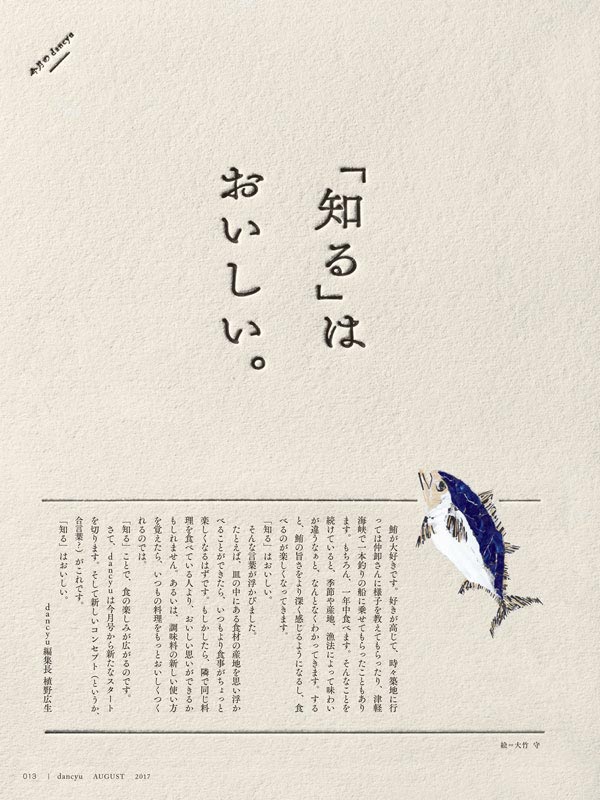 今月のdancyu
「知る」は
おいしい。
鮪が大好きです。好きが高じて、時々築地に行
っては仲卸さんに様子を教えてもらったり、津軽
海峡で一本釣りの船に乗せてもらったこともあり
ます。もちろん、一年中食べます。そんなことを
続けていると、季節や産地、漁法によって味わい
が違うなぁと、なんとなくわかってきます。する
と、鮪の旨さをより深く感じるようになるし、食
べるのが楽しくなってきます。
「知る」はおいしい。
そんな言葉が浮かびました。
たとえば、皿の中にある食材の産地を思い浮か
べることができたら、いつもより食事がちょっと
楽しくなるはずです。もしかしたら、隣で同じ料
理を食べている人より、おいしい思いができるか
もしれません。あるいは、調味料の新しい使い方
を覚えたら、いつもの料理をもっとおいしくつく
れるのでは。
「知る」ことで、食の楽しみが広がるのです。
さて、dancyuは今月号から新たなスタート
を切ります。そして新しいコンセプト（というか、
合言葉？）がこれです。
「知る」はおいしい。
dancyu編集長 植野広生
絵＝大竹 守
013 | dancyu AUGUST 2017